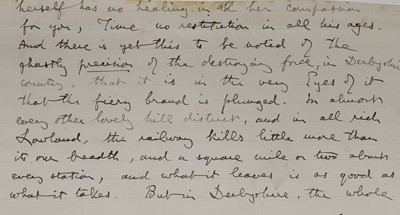 herself has no healing in all her compassion
for you, Time no restitution in all his ages.
And there is yet this to be noted of the
ghastly precision of the destroying force, in Derbyshire
country, that it is in the very Eyes of it
that the fiery brand is plunged. In almost
every other lovely hill district, and in all rich
Lowland, the railway kills little more than
its own breadth, and a square mile or two about
every station, and what it leaves is as good as
what it takes. But in Derbyshire, the whole